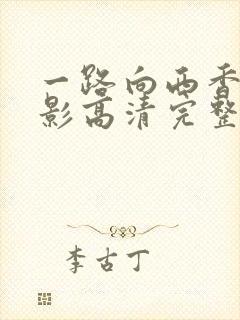 一路向西香
影高清完整
李古丁